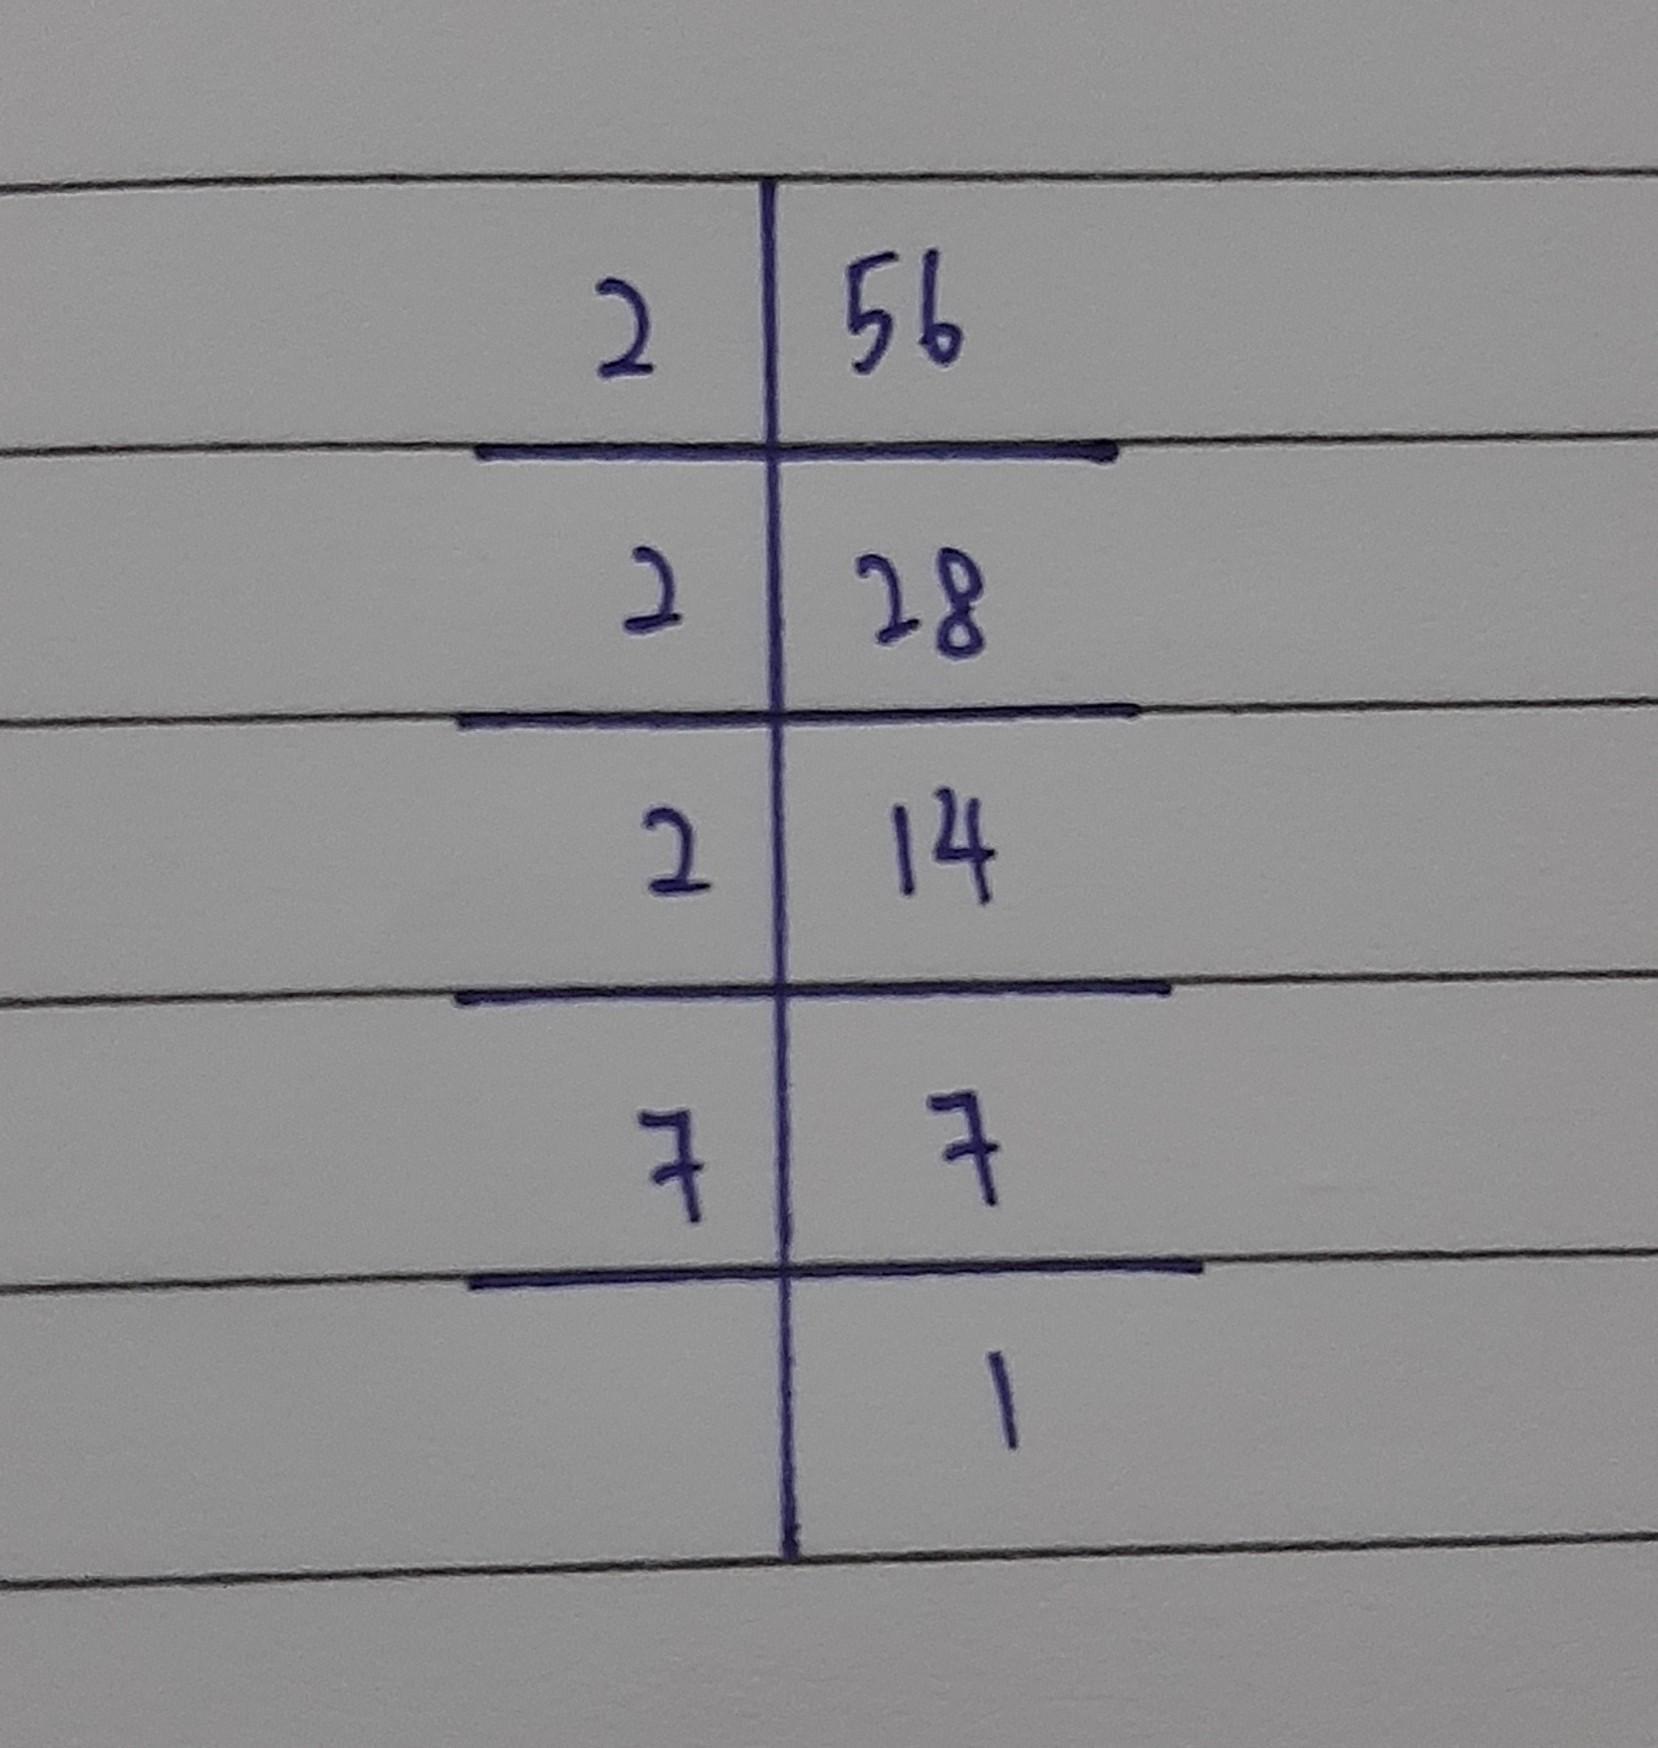 2 56
2 28
2 14
7 7
1